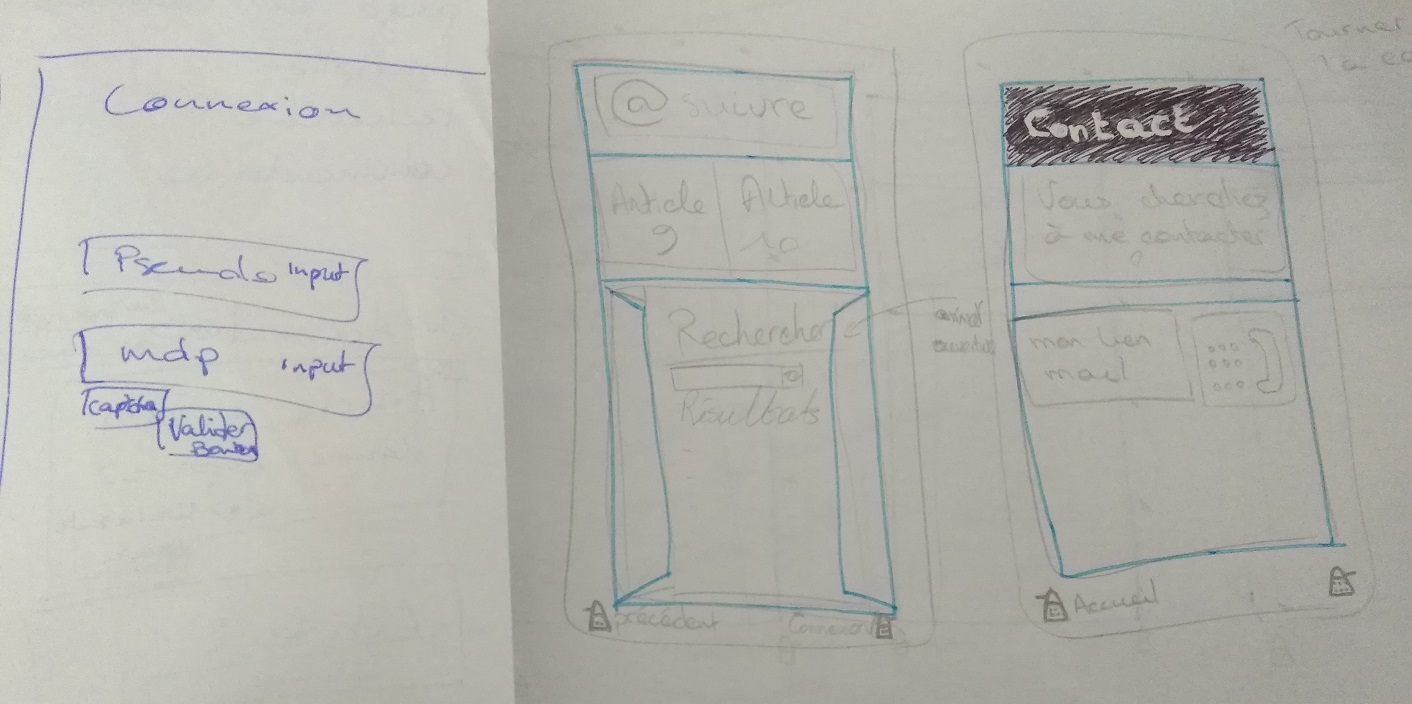 Connexion
Pseudo input
mdp input
captcha
Valider
@ suivre
Article 9
Article 10
Rechercher
Résultats
précédent
Connexion
Contact
Vous cherchez
à me contacter
?
mon lien
mail
Accueil
Tourner
la